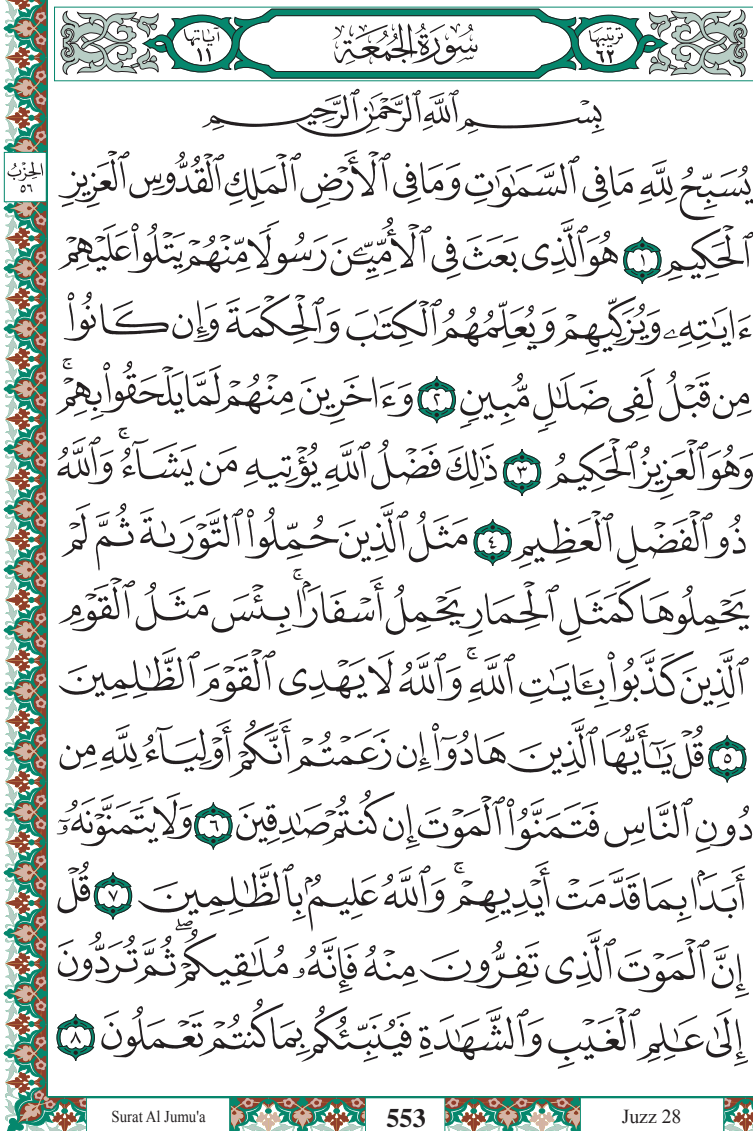 ترتيبها ٦٢ سُورَةُ الجُمُعَة آياتها ١١
بِسْمِ ٱللَّهِ ٱلرَّحْمَٰنِ ٱلرَّحِيمِ
يُسَبِّحُ لِلَّهِ مَا فِى ٱلسَّمَٰوَٰتِ وَمَا فِى ٱلْأَرْضِ ٱلْمَلِكِ ٱلْقُدُّوسِ ٱلْعَزِيزِ
الحِزْبُ ٥٦
ٱلْحَكِيمِ ١ هُوَ ٱلَّذِى بَعَثَ فِى ٱلْأُمِّيِّـۧنَ رَسُولًا مِّنْهُمْ يَتْلُوا۟ عَلَيْهِمْ
ءَايَٰتِهِۦ وَيُزَكِّيهِمْ وَيُعَلِّمُهُمُ ٱلْكِتَٰبَ وَٱلْحِكْمَةَ وَإِن كَانُوا۟
مِن قَبْلُ لَفِى ضَلَٰلٍ مُّبِينٍ ٢ وَءَاخَرِينَ مِنْهُمْ لَمَّا يَلْحَقُوا۟ بِهِمْ ۚ
وَهُوَ ٱلْعَزِيزُ ٱلْحَكِيمُ ٣ ذَٰلِكَ فَضْلُ ٱللَّهِ يُؤْتِيهِ مَن يَشَآءُ ۚ وَٱللَّهُ
ذُو ٱلْفَضْلِ ٱلْعَظِيمِ ٤ مَثَلُ ٱلَّذِينَ حُمِّلُوا۟ ٱلتَّوْرَىٰةَ ثُمَّ لَمْ
يَحْمِلُوهَا كَمَثَلِ ٱلْحِمَارِ يَحْمِلُ أَسْفَارًۢا ۚ بِئْسَ مَثَلُ ٱلْقَوْمِ
ٱلَّذِينَ كَذَّبُوا۟ بِـَٔايَٰتِ ٱللَّهِ ۚ وَٱللَّهُ لَا يَهْدِى ٱلْقَوْمَ ٱلظَّٰلِمِينَ
٥ قُلْ يَٰٓأَيُّهَا ٱلَّذِينَ هَادُوٓا۟ إِن زَعَمْتُمْ أَنَّكُمْ أَوْلِيَآءُ لِلَّهِ مِن
دُونِ ٱلنَّاسِ فَتَمَنَّوُا۟ ٱلْمَوْتَ إِن كُنتُمْ صَٰدِقِينَ ٦ وَلَا يَتَمَنَّوْنَهُۥٓ
أَبَدًۢا بِمَا قَدَّمَتْ أَيْدِيهِمْ ۚ وَٱللَّهُ عَلِيمٌۢ بِٱلظَّٰلِمِينَ ٧ قُلْ
إِنَّ ٱلْمَوْتَ ٱلَّذِى تَفِرُّونَ مِنْهُ فَإِنَّهُۥ مُلَٰقِيكُمْ ۖ ثُمَّ تُرَدُّونَ
إِلَىٰ عَٰلِمِ ٱلْغَيْبِ وَٱلشَّهَٰدَةِ فَيُنَبِّئُكُم بِمَا كُنتُمْ تَعْمَلُونَ ٨
Surat Al Jumu'a 553 Juzz 28